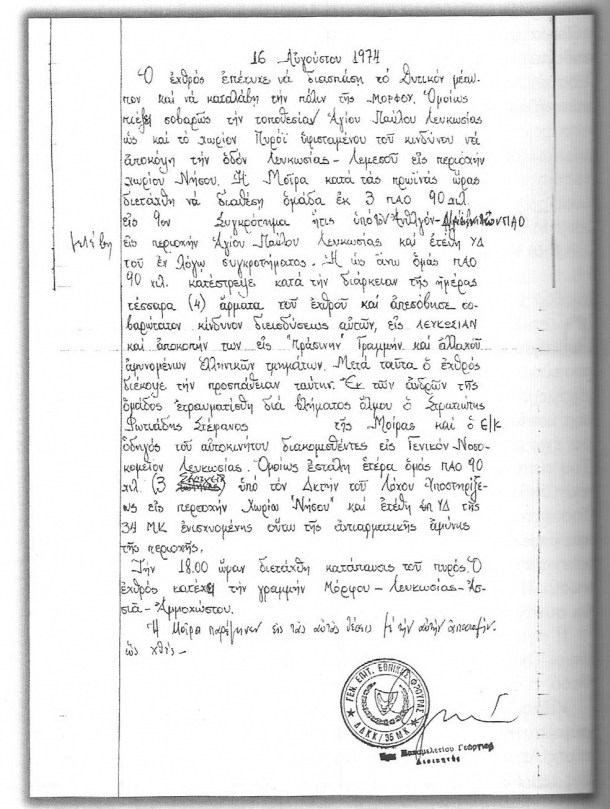 16 Αὐγούστου 1974
Ὁ ἐχθρός ἐπέτυχε νά διασπάσῃ τό Δυτικόν μέτω-
πον καί νά καταλάβῃ τήν πόλιν τῆς ΜΟΡΦΟΥ. Ὁμοίως
πιέζει σοβαρῶς τήν τοποθεσίαν Ἁγίου Παύλου Λευκωσίας
ὡς καί τό χωρίον Πυρόϊ ὑφισταμένου τοῦ κινδύνου νά
ἀποκόψῃ τήν ὁδόν Λευκωσίας - Λεμεσοῦ εἰς περιοχήν
χωρίου Νήσου. Ἡ Μοῖρα κατά τάς πρωϊνάς ὥρας
διετάχθη νά διαθέσῃ ὁμάδα ἐκ 3 ΠΑΟ 90 χιλ.
εἰς 9ον Συγκρότημα ἥτις ὑπό τόν ΠΑΟ
εἰς περιοχήν Ἁγίου Παύλου Λευκωσίας καί ἐτέθη ΥΔ
τοῦ ἐν λόγῳ συγκροτήματος. Ἡ ὡς ἄνω ὁμάς ΠΑΟ
90 χιλ. κατέστρεψε κατά τήν διάρκειαν τῆς ἡμέρας
τέσσαρα (4) ἅρματα τοῦ ἐχθροῦ καί ἀπεσόβησε σο-
βαρώτατον κίνδυνον διεισδύσεως αὐτῶν, εἰς ΛΕΥΚΩΣΙΑΝ
καί ἀποκοπήν των εἰς "πράσινην" Γραμμήν καί ἀλλαχοῦ
ἀμυνομένων Ἑλληνικῶν τμημάτων. Μετά ταῦτα ὁ ἐχθρός
διέκοψε τήν προσπάθειαν ταύτην. Ἐκ τῶν ἀνδρῶν τῆς
ὁμάδος ἐτραυματίσθη διά βλήματος ὅλμου ὁ Στρατιώτης
Φωτιάδης Στέφανος τῆς Μοίρας καί ὁ Ε/Κ
ὁδηγός τοῦ αὐτοκινήτου διακομισθέντες εἰς Γενικόν Νοσο-
κομεῖον Λευκωσίας. Ὁμοίως ἐστάλη ἑτέρα ὁμάς ΠΑΟ 90
χιλ. (3 ) ὑπό τόν Δκτήν τοῦ Λόχου Ὑποστηρίξε-
ως εἰς περιοχήν Χωρίου "Νήσου" καί ἐτέθη ὑπό ΥΔ τῆς
34 ΜΚ ἐνισχυομένης οὕτω τῆς ἀντιαρματικῆς ἀμύνης
τῆς περιοχῆς.
Τήν 18.00 ὥραν διετάχθη κατάπαυσις τοῦ πυρός. Ὁ
ἐχθρός κατέχει τήν γραμμήν Μόρφου - Λευκωσίας - Ἀσ-
σιᾶ - Ἀμμοχώστου.
Ἡ Μοῖρα παρέμεινεν εἰς τάς αὐτάς θέσεις μέ τήν αὐτήν ἀποστολήν.
ὡς χθές -
ΓΕΝ. ΕΠΙΤ. ΕΘΝΙΚΗΣ ΦΡΟΥΡΑΣ
ΔΔΚΚ/35 ΜΚ
Παπαμελετίου Γεώργιος
Διοικητής